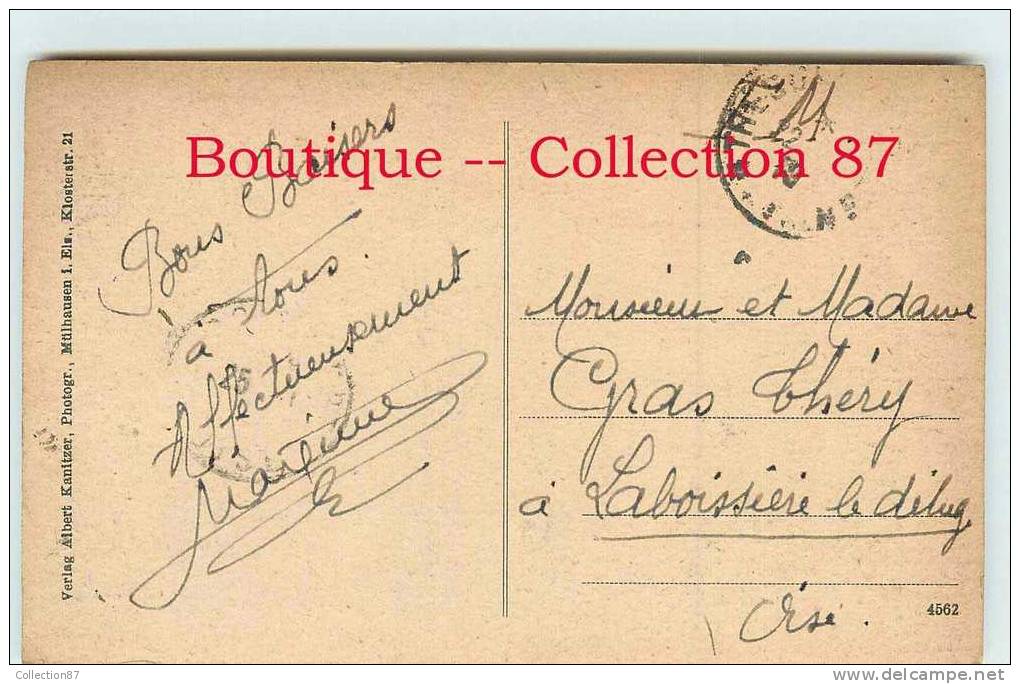 Boutique -- Collection 87
Verlag Albert Kanitzer, Photogr., Mülhausen i. Els., Klosterstr. 21
Bons Baisers
à tous.
Affectueusement
Maxime
Monsieur et Madame
Gras Théry
à Laboissière le déluge
Oise.
4562
Collection87
delcampe.net